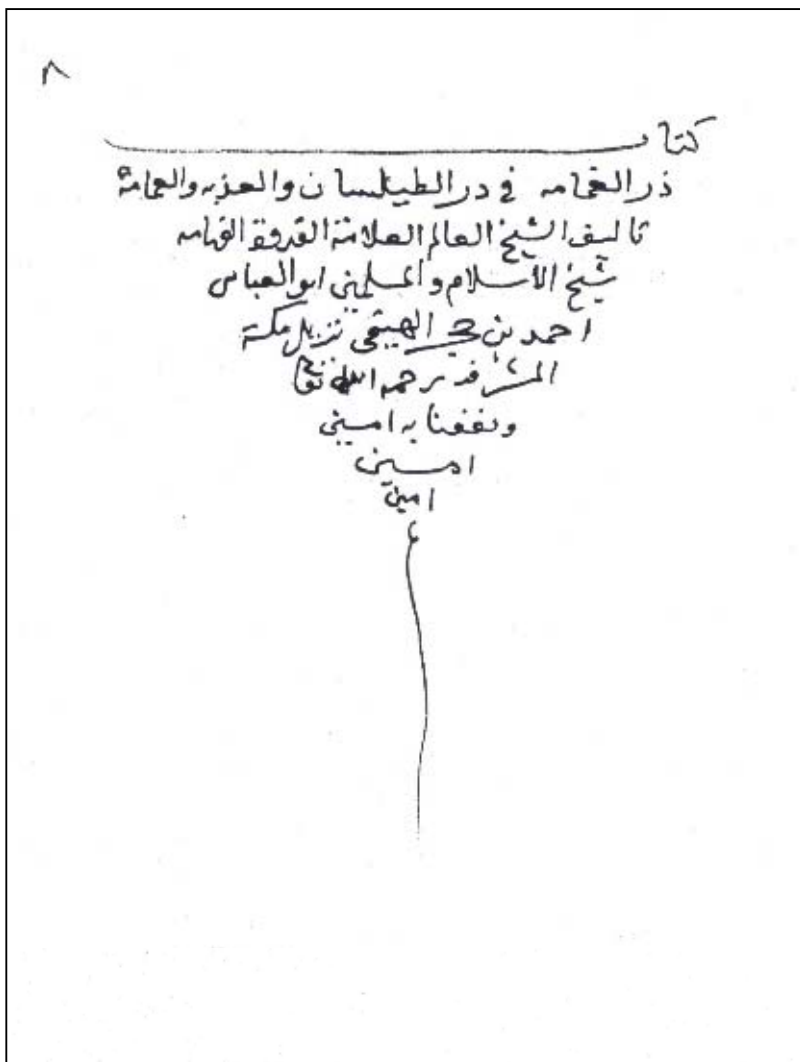 ٨
كتاب
در الغمامه في در الطيلسان والعذبه والعمامة
تاليف الشيخ العالم العلامة القدوة الفهامه
شيخ الاسلام والمسلمين ابو العباس
احمد بن حجر الهيتمي نزيل مكة
المشرفة رحمه الله تعالى
ونفعنا به امين
امين
امين